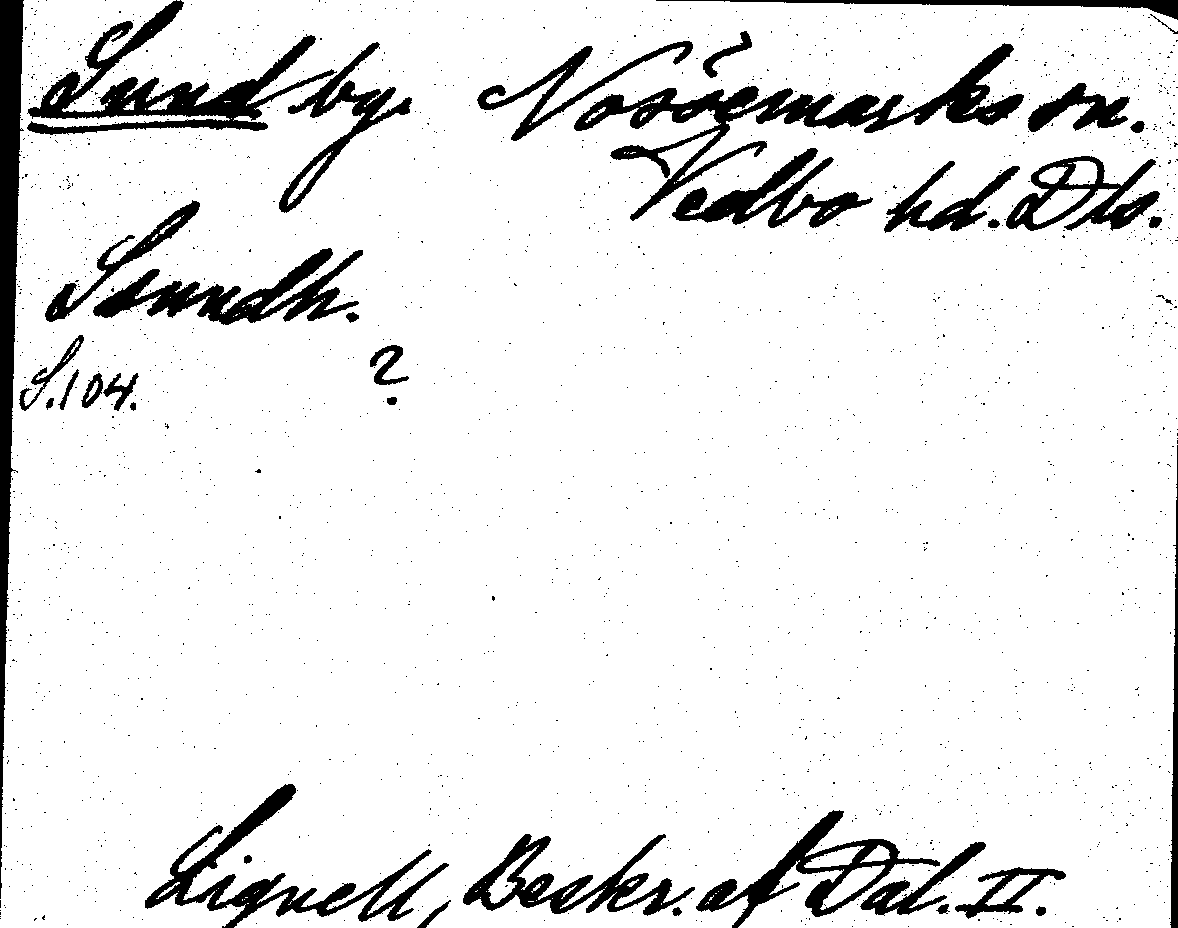 Sund by. Nössemarks sn.
Vedbo hd. Dls.
Sunndh.
S.104. ?
Lignell, Beskr. af Dal. II.